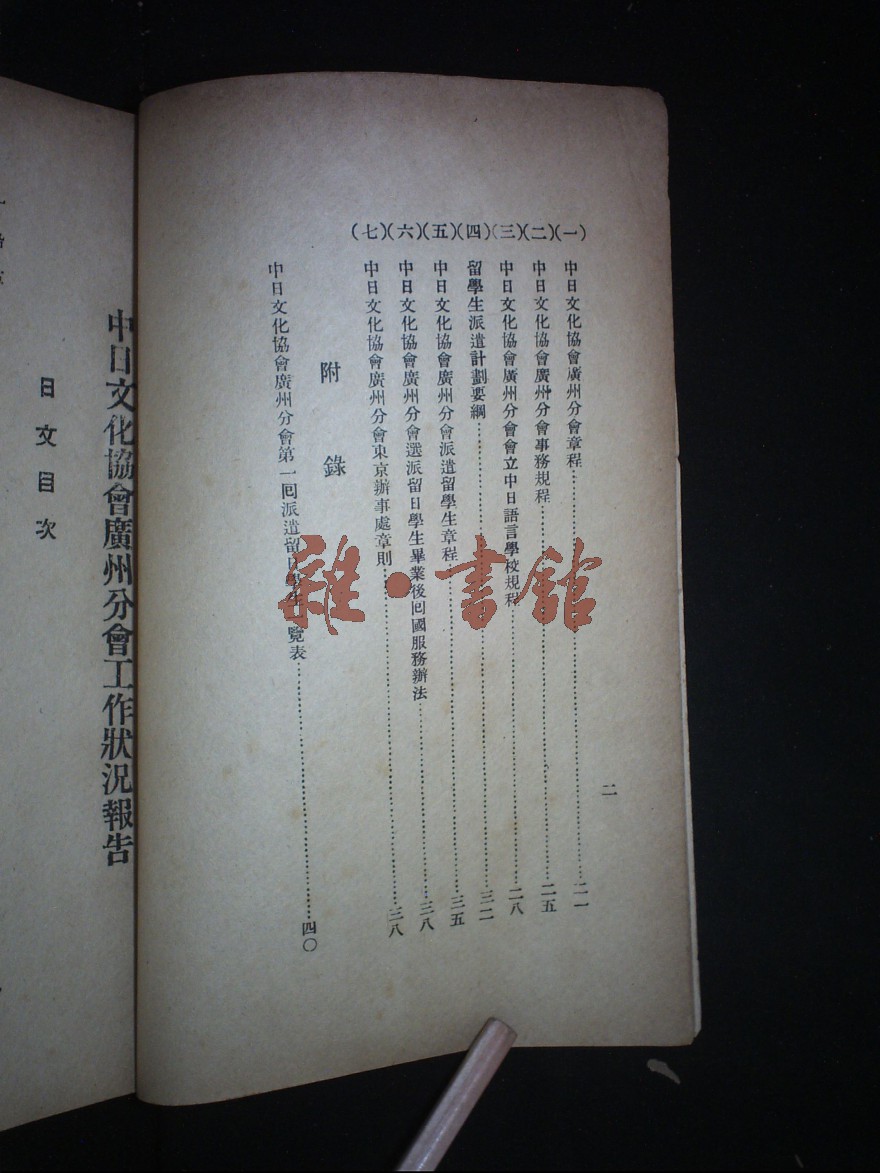 二
(一)中日文化協會廣州分會章程……二一
(二)中日文化協會廣州分會事務規程……二五
(三)中日文化協會廣州分會會立中日語言學校規程……二八
(四)留學生派遣計劃要綱……三二
(五)中日文化協會廣州分會派遣留學生章程……三五
(六)中日文化協會廣州分會選派留日學生畢業後回國服務辦法……三八
(七)中日文化協會廣州分會東京辦事處章則……三八
附錄
中日文化協會廣州分會第一回派遣留日學生一覽表……四〇
中日文化協會廣州分會工作狀況報告
日文目次
雜·書館